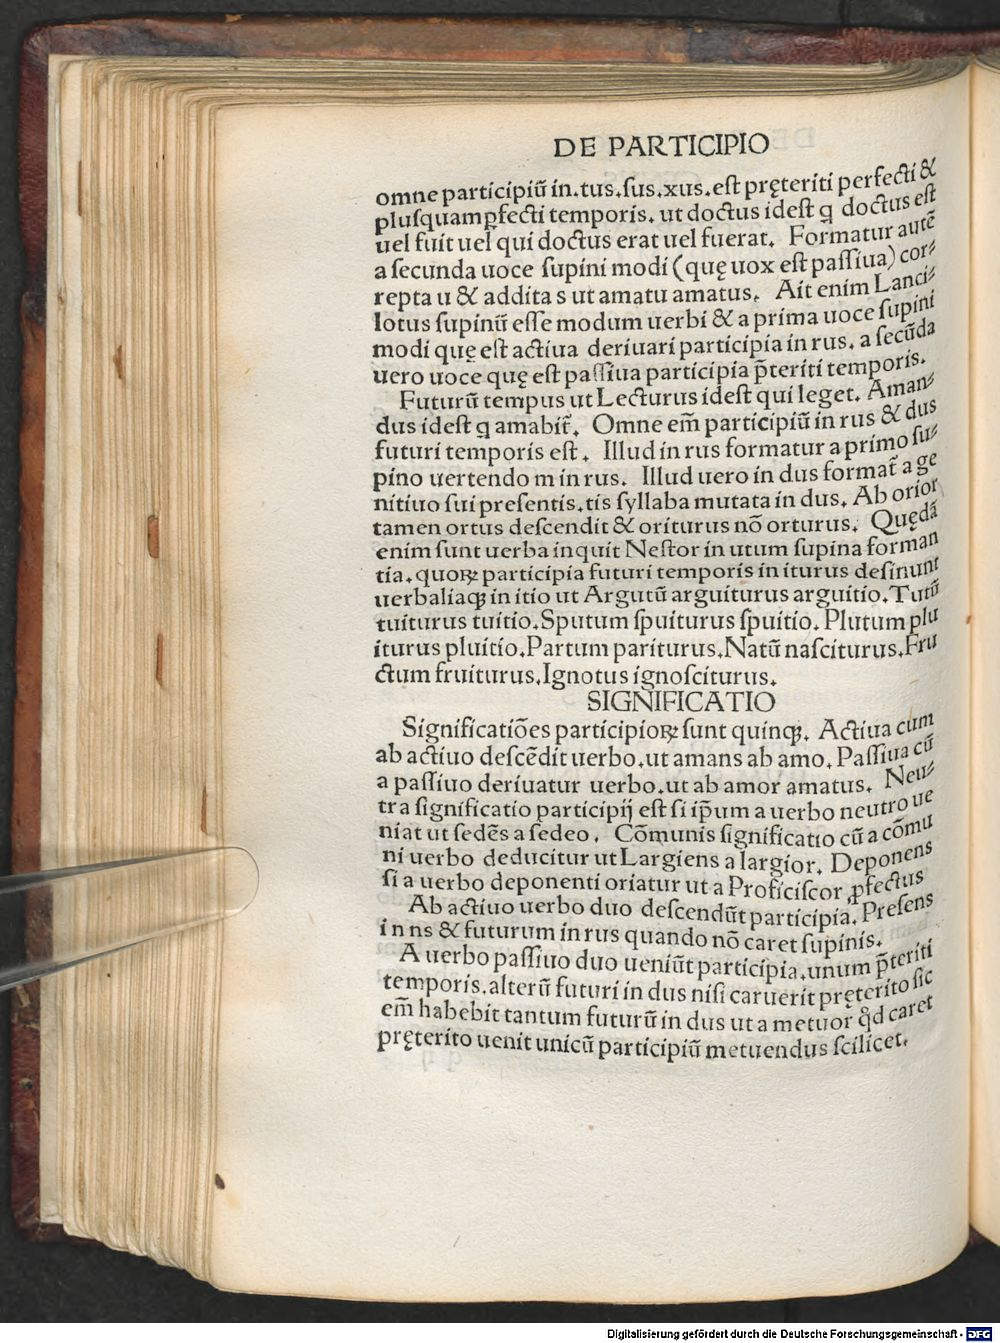 DE PARTICIPIO
omne participiū in.tus.sus.xus.est pręteriti perfecti &
plusquamꝑfecti temporis. ut doctus idest q doctus est
uel fuit uel qui doctus erat uel fuerat. Formatur autē
a secunda uoce supini modi (quę uox est passiua) cor⸗
repta u & addita s ut amatu amatus. Ait enim Lanci⸗
lotus supinū esse modum uerbi & a prima uoce supini
modi quę est actiua deriuari participia in rus. a secūda
uero uoce quę est passiua participia p̄teriti temporis.
Futurū tempus ut Lecturus idest qui leget. Aman⸗
dus idest q amabit᷑. Omne em̄ participiū in rus & dus
futuri temporis est. Illud in rus formatur a primo su⸗
pino uertendo m in rus. Illud uero in dus format᷑ a ge
nitiuo sui presentis.tis syllaba mutata in dus. Ab orior
tamen ortus descendit & oriturus nō orturus. Quędā
enim sunt uerba inquit Nestor in utum supina forman
tia.quoꝝ participia futuri temporis in iturus desinunt
uerbaliaqꝫ in itio ut Argutū arguiturus arguitio.Tutū
tuiturus tuitio.Sputum spuiturus spuitio.Plutum plu
iturus pluitio.Partum pariturus.Natū nasciturus.Fru
ctum fruiturus.Ignotus ignosciturus.
SIGNIFICATIO
Significatiōes participioꝝ sunt quinqꝫ. Actiua cum
ab actiuo descēdit uerbo.ut amans ab amo. Passiua cū
a passiuo deriuatur uerbo.ut ab amor amatus. Neu⸗
tra significatio participij est si ip̄um a uerbo neutro ue
niat ut sedēs a sedeo. Cōmunis significatio cū a cōmu
ni uerbo deducitur ut Largiens a largior. Deponens
si a uerbo deponenti oriatur ut a Proficiscor ꝓfectus
Ab actiuo uerbo duo descendūt participia. Presens
in ns & futurum in rus quando nō caret supinis.
A uerbo passiuo duo ueniūt participia.unum p̄teriti
temporis.alterū futuri in dus nisi caruerit pręterito sic
em̄ habebit tantum futurū in dus ut a metuor qd̄ caret
pręterito uenit unicū participiū metuendus scilicet.
Digitalisierung gefördert durch die Deutsche Forschungsgemeinschaft - DFG